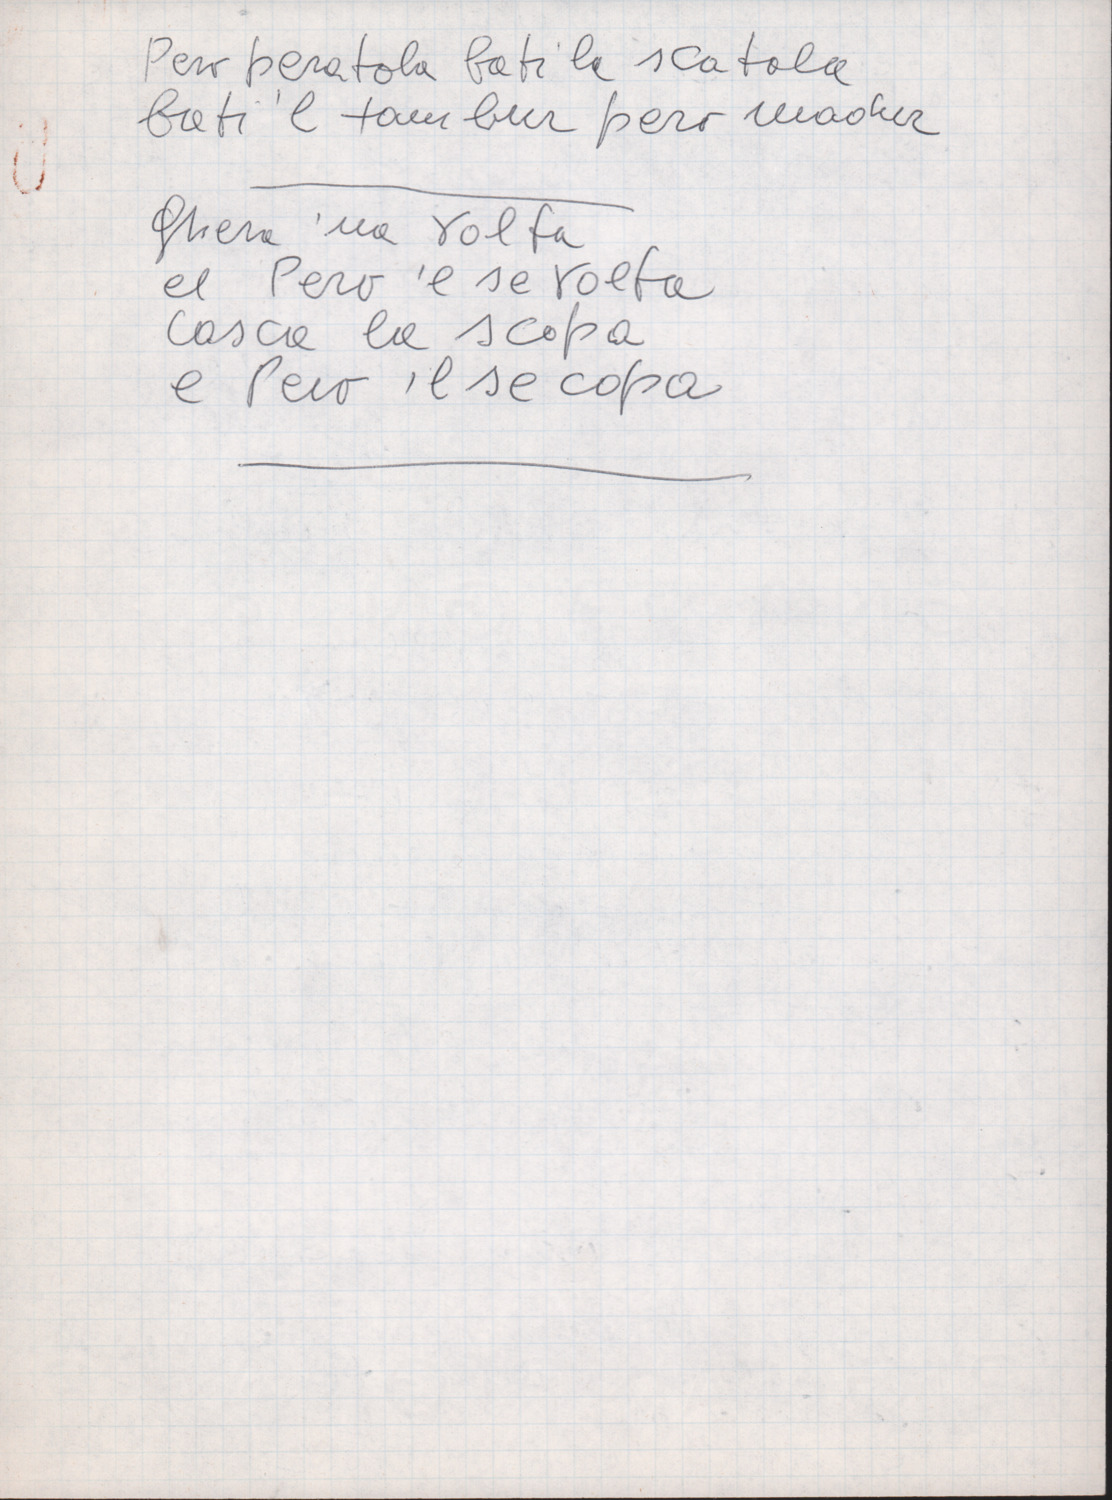 Pero peratola bati la scatola
bati 'l tambur pero madur
Ghera 'na volta
el Pero 'l se volta
casca la scopa
e Pero 'l se copa